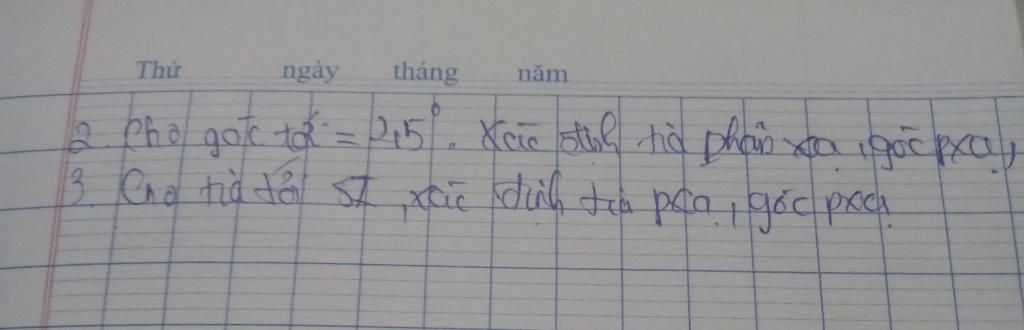 Thứ ngày tháng năm
2. Cho góc tới = 25°. Xác định tia phản xạ, góc pxạ,
3. Cho tia tới SI, xác định tia pxạ, góc pxạ.